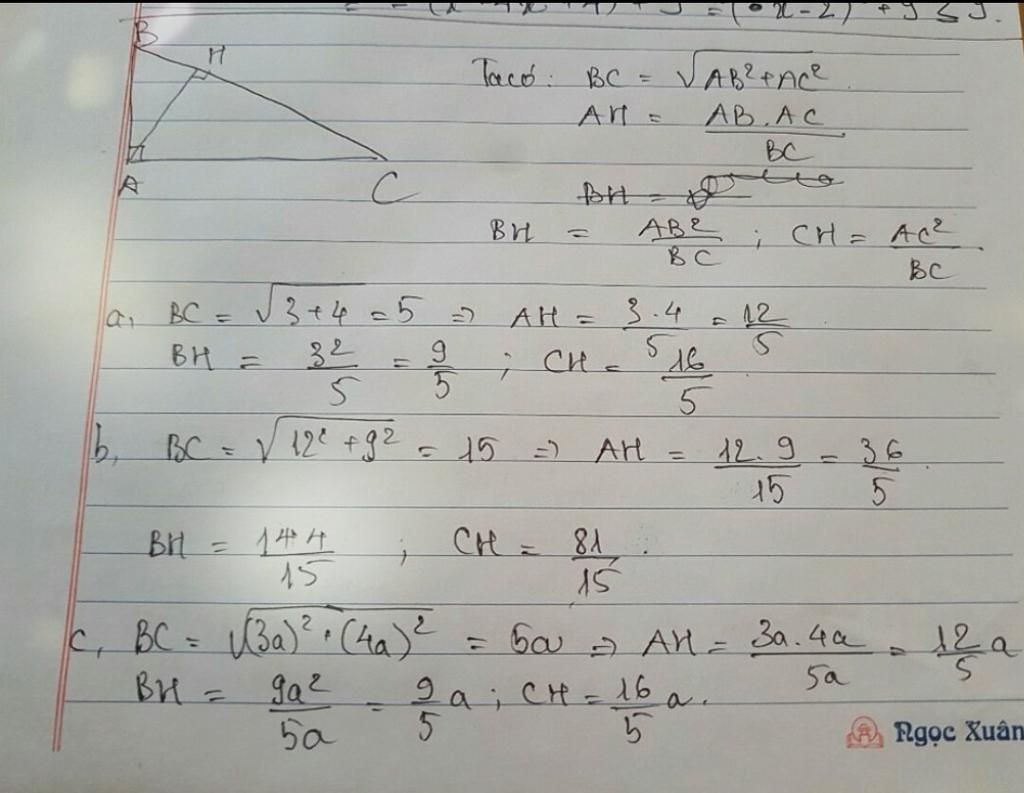 = (x - 2)² + 9 ≤ 9.
B
H
A
C
Ta có: BC = √(AB² + AC²)
AH = AB.AC / BC
BH = AB² / BC ; CH = AC² / BC.
a, BC = √(3+4) = 5 => AH = 3.4 / 5 = 12/5.
BH = 3² / 5 = 9/5 ; CH = 16/5
b, BC = √(12² + 9²) = 15 => AH = 12.9 / 15 = 36/5.
BH = 144/15 ; CH = 81/15.
c, BC = √((3a)² + (4a)²) = 5a => AH = 3a.4a / 5a = 12/5 a
BH = 9a² / 5a = 9/5 a ; CH = 16/5 a.
Ngọc Xuân